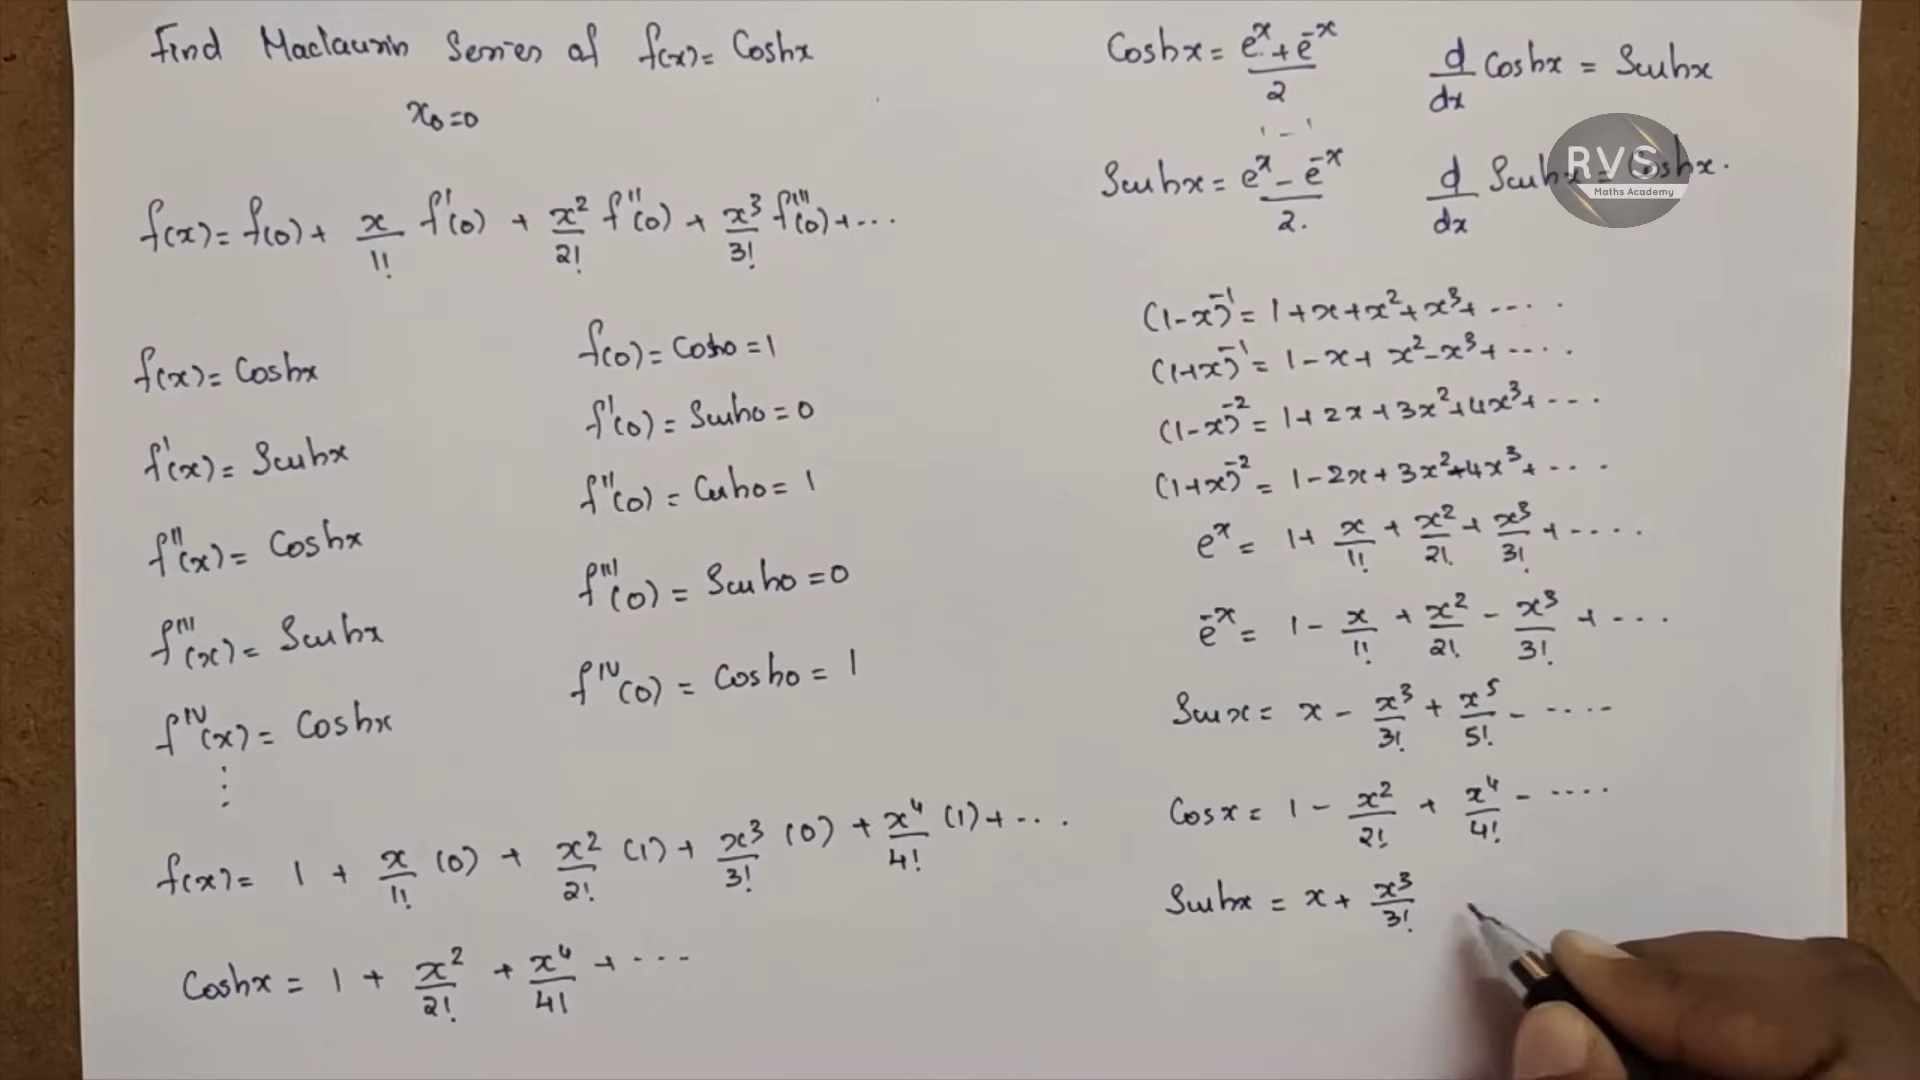 Find Maclaurin Series of f(x) = Coshx
x₀ = 0
f(x) = f(0) + x/1! f'(0) + x²/2! f''(0) + x³/3! f'''(0) + ...
f(x) = Coshx
f'(x) = Sinhx
f''(x) = Coshx
f'''(x) = Sinhx
f^IV(x) = Coshx
⋮
f(0) = Cosh0 = 1
f'(0) = Sinh0 = 0
f''(0) = Cosh0 = 1
f'''(0) = Sinh0 = 0
f^IV(0) = Cosh0 = 1
f(x) = 1 + x/1! (0) + x²/2! (1) + x³/3! (0) + x⁴/4! (1) + ...
Coshx = 1 + x²/2! + x⁴/4! + ...
Coshx = (e^x + e^-x)/2
d/dx Coshx = Sinhx
1 - 1
Sinhx = (e^x - e^-x)/2.
d/dx Sinhx = Coshx.
RVS
Maths Academy
(1-x)^-1 = 1 + x + x² + x³ + ....
(1+x)^-1 = 1 - x + x² - x³ + ....
(1-x)^-2 = 1 + 2x + 3x² + 4x³ + ...
(1+x)^-2 = 1 - 2x + 3x² - 4x³ + ....
e^x = 1 + x/1! + x²/2! + x³/3! + ....
e^-x = 1 - x/1! + x²/2! - x³/3! + ...
Sinx = x - x³/3! + x⁵/5! - ....
Cosx = 1 - x²/2! + x⁴/4! - ....
Sinhx = x + x³/3!